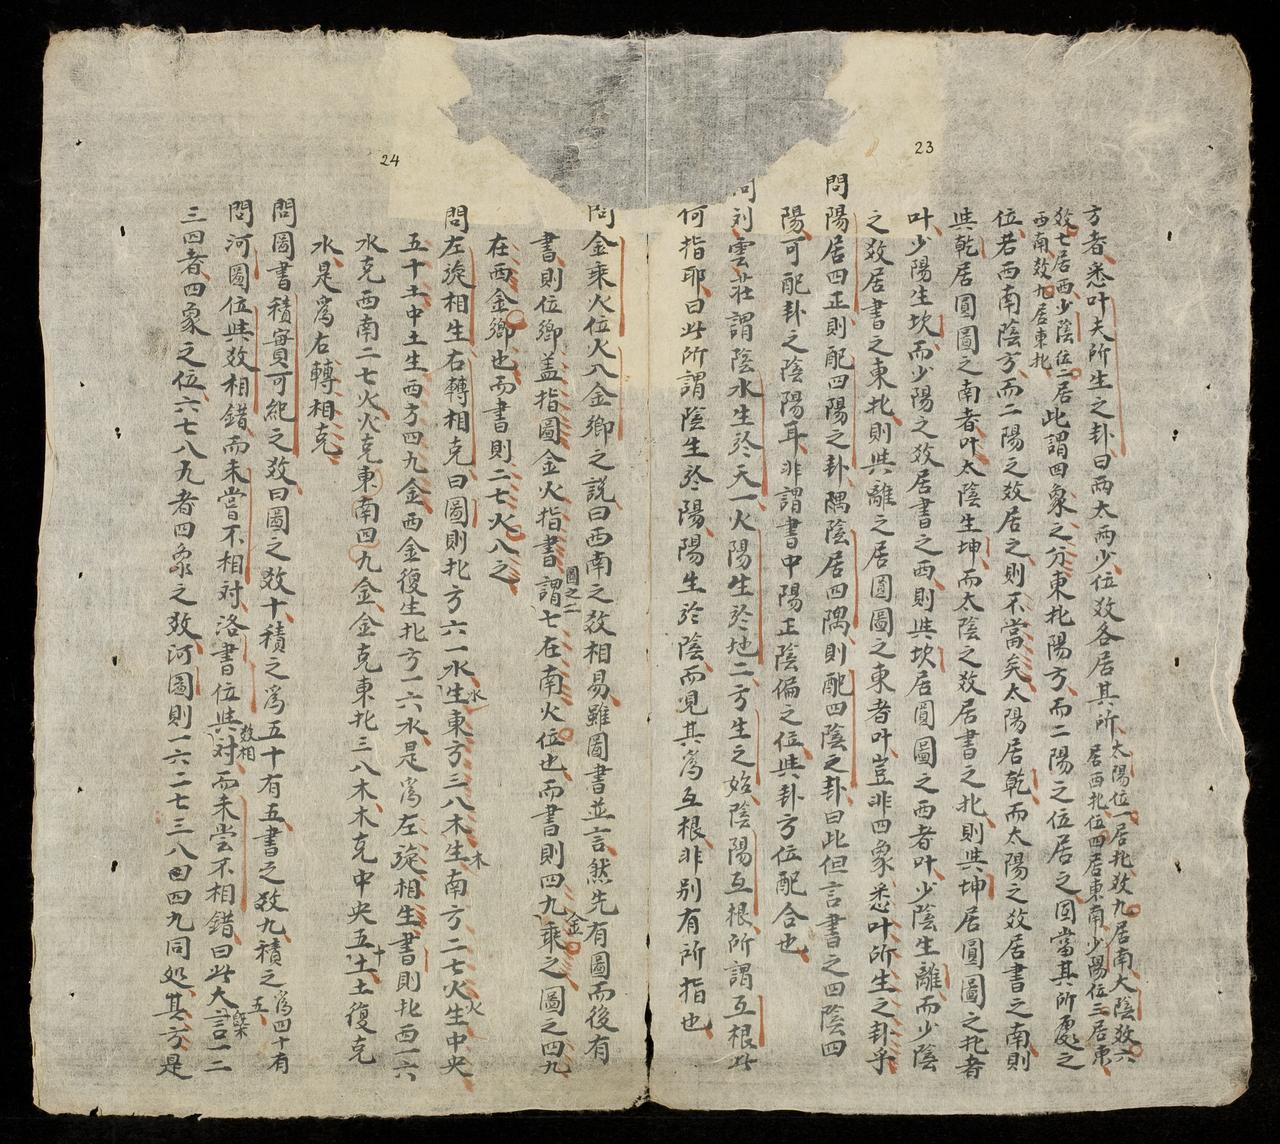 23
方者悉叶夫所生之卦曰兩太兩少位数各居其所太陽位一居北数九居南太陰数六居西北位四居東南少陽位三居東
数七居西少陰位二居西南数八居東北此謂四象之分東北陽方而二陽之位居之固當其所處之
位若西南陰方而二陽之数居之則不當矣太陽居乾而太陽之数居書之南則
與乾居圓圖之南者叶太陰生坤而太陰之数居書之北則與坤居圓圖之北者
叶少陽生坎而少陽之数居書之西則與坎居圓圖之西者叶少陰生離而少陰
之数居書之東北則與離之居圓圖之東者叶豈非四象悉叶所生之卦乎
問陽居四正則配四陽之卦隅陰居四隅則配四陰之卦曰此但言書之四陰四
陽可配卦之陰陽耳非謂書中陽正陰偏之位與卦方位配合也
問刘雲莊謂陰水生於天一火陽生於地二方生之始陰陽互根所謂互根此
何指耶曰此所謂陰生於陽陽生於陰而見其為互根非别有所指也
24
問金乘火位火入金鄉之說曰西南之数相易雖圖書並言然先有圖而後有
書則位鄉盖指圖金火指書謂圖之二七在南火位也而書則四九金乘之圖之四九
在西金鄉也而書則二七火入之
問左旋相生右轉相克曰圖則北方六一水水生東方三八木木生南方二七火火生中央
五十土中土生西方四九金西金復生北方一六水是為左旋相生書則北西一六
水克西南二七火火克東南四九金金克東北三八木木克中央五十土土復克
水是為右轉相克
問圖書積實可紀之数曰圖之数十積之為五十有五書之数九積之為四十有五
問河圖位與数相錯而未嘗不相対洛書位與数相対而未尝不相錯曰此大槩言一二
三四者四象之位六七八九者四象之数河圖則一六二七三八四四九同処其方是